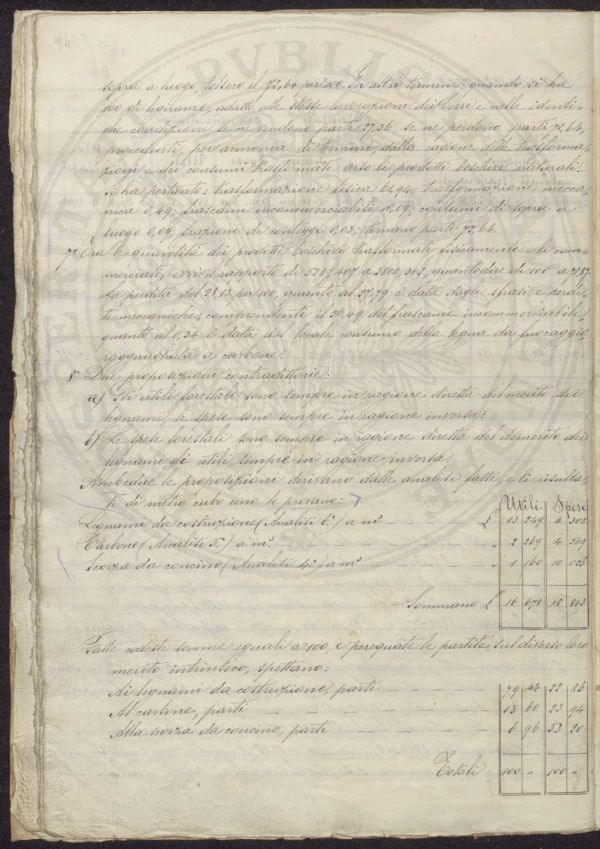 sopra a luogo, tolsero il 72,64 per 100. In altri termini: quando si ha
100 di legname, adatto alle stesse lavorazione dei e nelle identi-
che condizioni, se ne rendono parti 27,36, se ne perdono parti 72,64,
procedenti, per armonia di termini, dalla ragione alle trasforma-
zioni e nei consumi trasformati verso li prodotti boschivi naturali.
Si ha pertanto: trasformazione fisica 61,94; trasformazione mecca-
nica 0,49; trascami incommerciabili 10,09; consumi di sopra a
luogo 0,09; frazioni di conteggi 0,03; tornano parti 72,64.
7° Tra le quantità dei prodotti boschivi trasformati fisicamente ed i com-
merciati, evvi il rapporto di 5287,407 a 3800,303, quanto dire di 100 a 71,87.
La perdita del 28,13 per 100, quanto al 27,79 è data dagli sfrasi e perdi-
te meccaniche, comprendenti il 20,49 del trascame incommerciabile,
quanto al 0,34 è data dal locale consumo della legna da fuocaggio,
ragguagliata a carbone.
8° Due proposizioni contradittorie:
a) Gli utili forestali sono sempre in ragione diretta del merito dei
legnami, le spese sono sempre in ragione inversa:
b) Le spese forestali sono sempre in ragione diretta del demerito dei
legnami, gli utili sempre in ragione inversa.
Ambedue le proposizioni derivano dalle analisi fatte, e li risulta-
ti di metro cubo uno le provano:
Utili Spese
Legnami da costruzione (Analisi 6ª) a m³ £ 13 249 4 308
Carbone (Analisi 5ª) a m³ 2 269 4 509
Scorza da concino (Analisi 4ª) a m³ 1 160 10 026
Sommano £ 16 678 18 843
Fatte coteste somme eguali a 100, e perequate le partite sul diverso loro
merito intrinseco, spettano:
Ai legnami da costruzione, parti 79 44 22 86
Al carbone, parti 13 60 23 94
Alla scorza da concino, parti 6 96 53 20
Totali 100 " 100 "